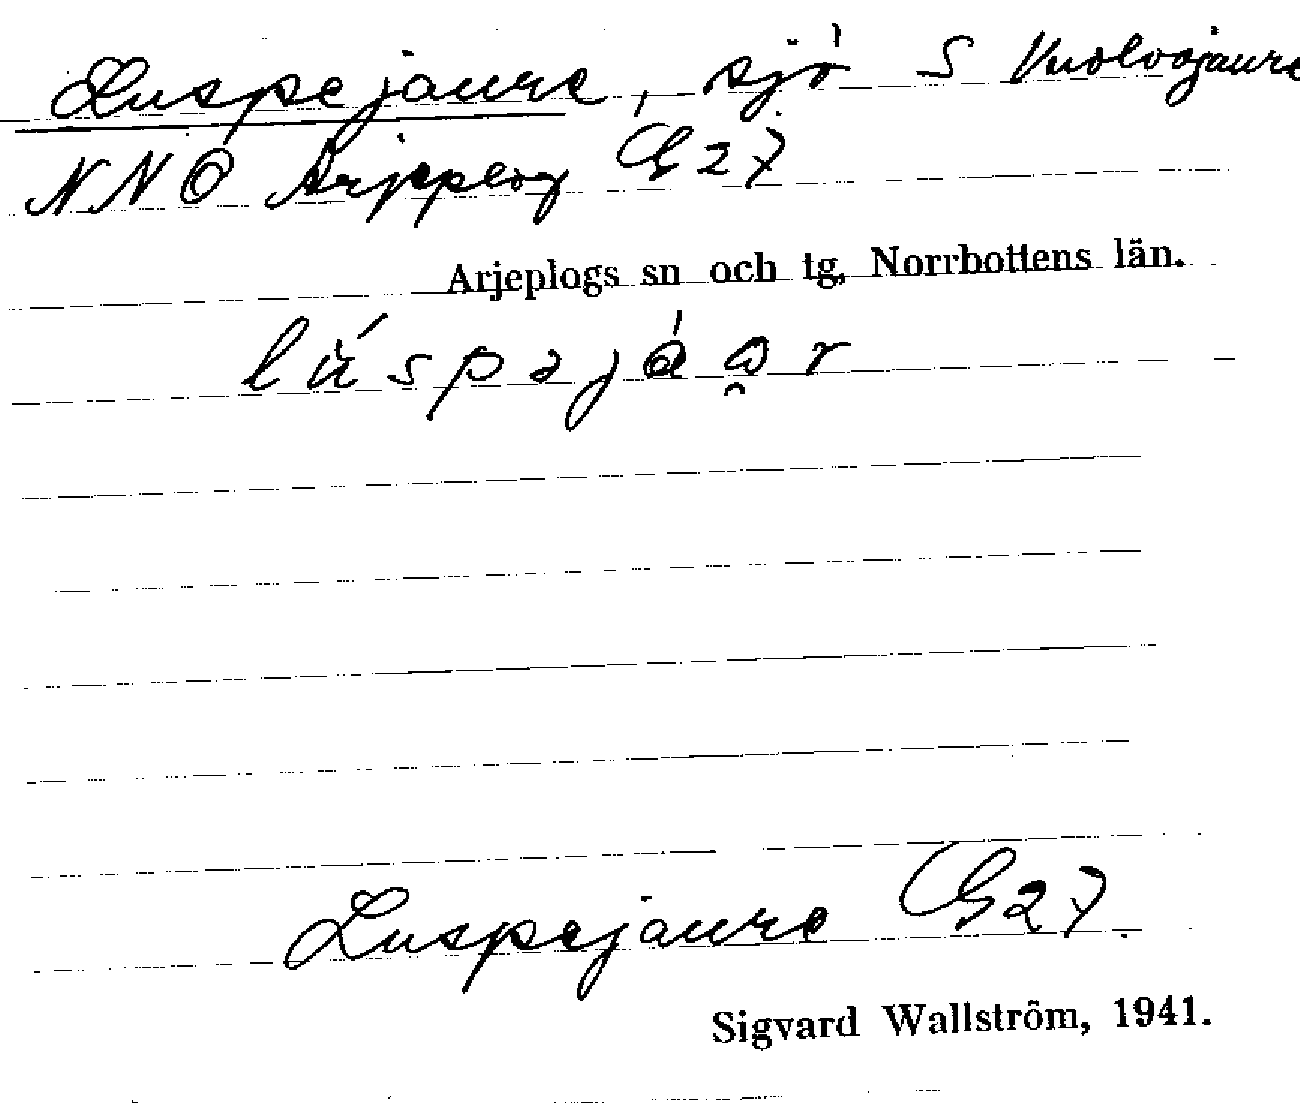 Luspejaure, sjö S Vuolvojaure
NNÖ Arjeplog G27
Arjeplogs sn och tg, Norrbottens län.
Luspejaure G27
Sigvard Wallström, 1941.